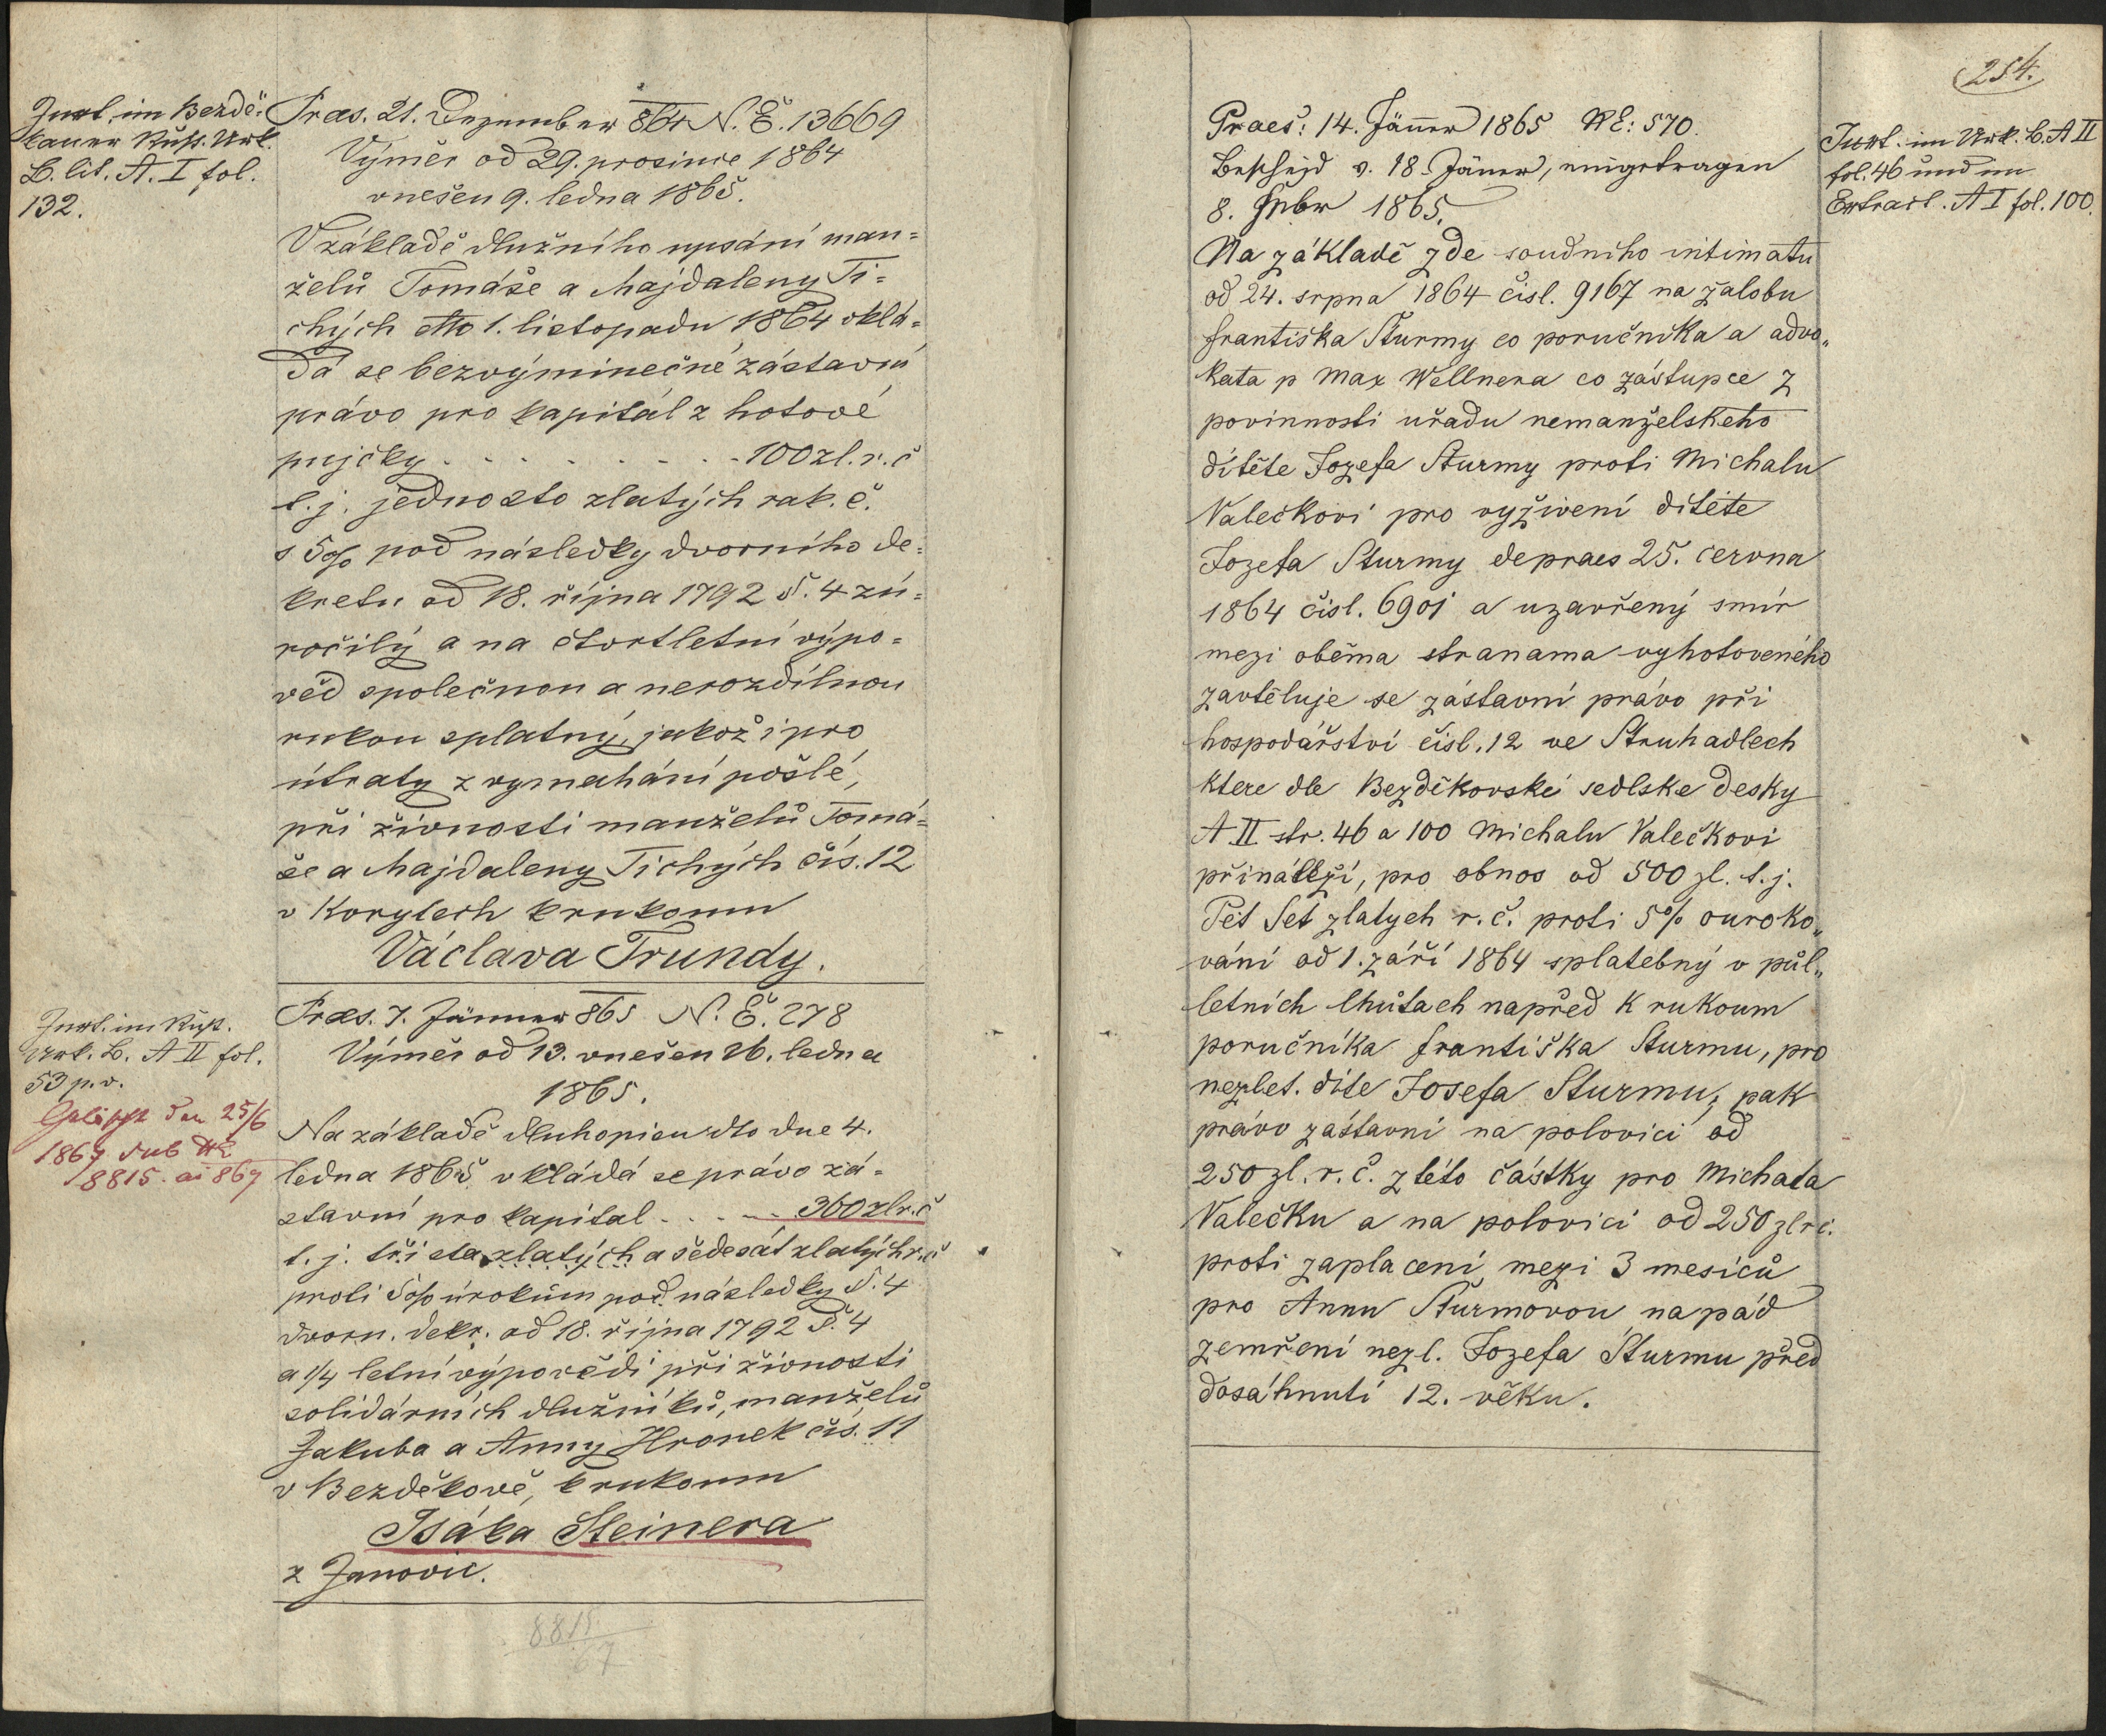 Inst. im Bezdě-
kauer Rust. Urk.
B. lit. A. I fol.
132.
Præs. 21. Dezember 864 N. E. 13669
Výměr od 29. prosince 1864
vnešen 9. ledna 1865.
V základě dlužního upsání man=
želů Tomáše a Majdaleny Ti=
chých dtto 1. listopadu 1864 vklá=
dá se bezvýminečné zástavní
právo pro kapitál z hotové
pujčky . . . . . . . . 100 zl. r. č
t. j. jednosto zlatých rak. č.
s 5% pod následky dvorního de=
kretu od 18. října 1792 §. 4 zú=
ročilý a na čtvrtletní výpo=
věd společnou a nerozdílnou
rukou splatný, jakož i pro
útraty z vymahání pošlé,
při živnosti manželů Tomá=
še a Majdaleny Tichých čís. 12
v Korytech k rukoum
Václava Trundy.
Inst. im Rust.
Urk. B. A II fol.
53 p. v.
Gelöscht den 25/6
1867 sub NE
8815. ai 867
Præs. 7. Jänner 865 N. E. 278
Výměr od 13. vnešen 26. ledna
1865.
Na základě dluhopisu dto dne 4.
ledna 1865 vkládá se právo zá=
stavní pro kapital . . . . 360 zl r. č
t. j. tři sta zlatých a šedesát zlatých r. č
proti 5% úrokům pod následky §. 4
dvorn. dekr. od 18. října 1792 §. 4
a 1/4 letní výpovědi při živnosti
solidárních dlužníků, manželů
Jakuba a Anny Hronek čís. 11
v Bezděkově, k rukoum
Isáka Steinera
z Janovic.
8815
67
254.
Praes: 14. Jäner 1865 NE: 570.
Bescheid v. 18. Jäner, eingetragen
8. Feber 1865.
Inst. im Urk. B. A II
fol. 46 und im
Extract. A I fol. 100.
Na základě zde soudního intimatu
od 24. srpna 1864 čisl. 9167 na žalobu
Františka Šturmy co poručníka a advo„
kata p Max Wellnera co zástupce z
povinnosti uřadu nemanželskeho
dítěte Jozefa Šturmy proti Michalu
Valečkovi pro vyživení ditěte
Jozefa Sturmy de praes 25. června
1864 čisl. 6901 a uzavřený smír
mezi oběma stranama vyhotoveného
zavtěluje se zástavní právo při
hospodářství čísl. 12 ve Struhadlech
ktere dle Bezděkovské sedlske desky
A II str. 46 a 100 Michalu Valečkovi
přináleží, pro obnos od 500 zl. t. j.
Pět Set zlatych r. č. proti 5% ouroko„
vání od 1. září 1864 splatebný v půl„
letních lhůtach napřed k rukoum
poručníka Františka Sturmu, pro
nezlet. díte Josefa Sturmu, pak
právo zástavní na polovici od
250 zl. r. č. z této částky pro Michala
Valečku a na polovici od 250 zl r č.
proti zaplacení mezi 3 mesíců
pro Annu Šturmovou na pád
zemření nezl. Jozefa Šturmu před
dosáhnutí 12. věku.